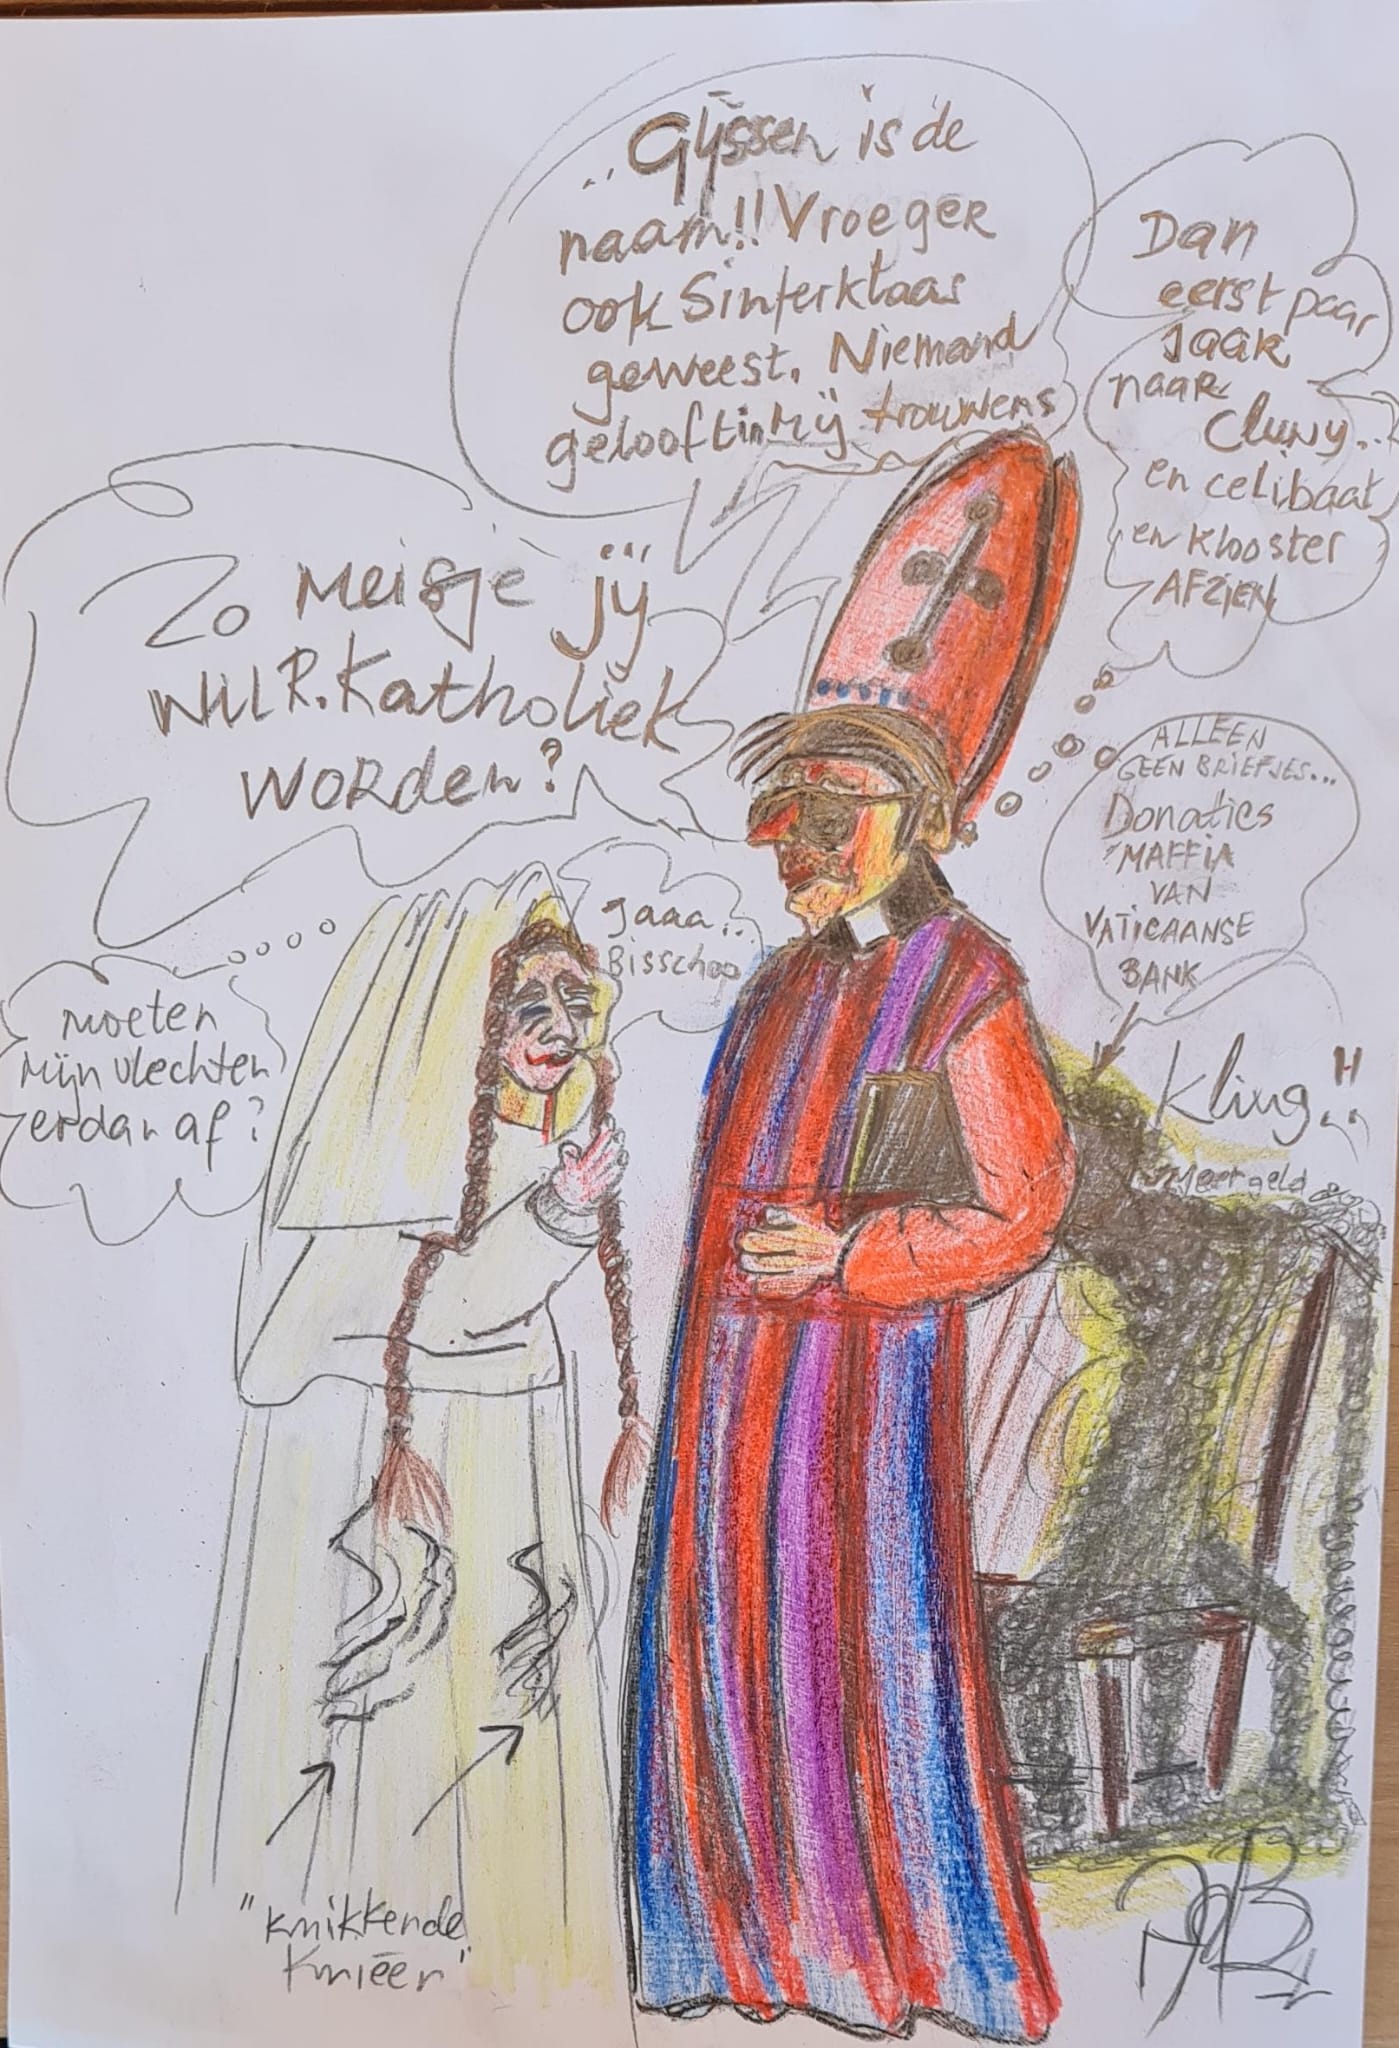 "Gijssen is de
naam!! Vroeger
ook Sinterklaas
geweest. Niemand
gelooft in Mij trouwens
Dan
eerst paar
Jaar
naar
Cluny..
en celibaat
en klooster
AFZIEN
Zo meisje jij
WIL R. Katholiek
worden?
ALLEEN
GEEN BRIEFJES...
Donaties
MAFFIA
VAN
VATICAANSE
BANK
Jaaa..
Bisschop
Moeten
Mijn vlechten
er dan af?
Kling..
Meer geld
"Knikkende
Knieën"